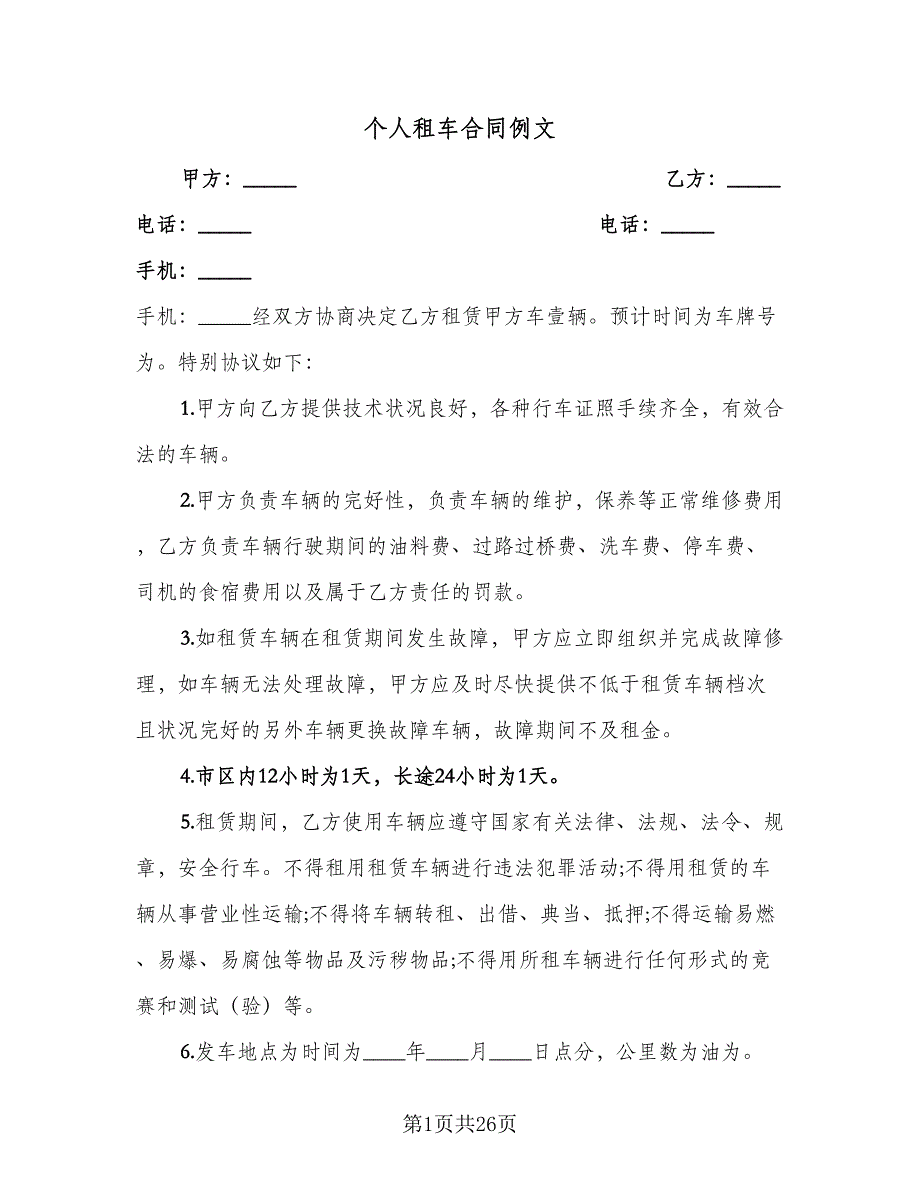 个人租车合同例文
甲方：_____ 乙方：_____
电话：_____ 电话：_____
手机：_____
手机：_____经双方协商决定乙方租赁甲方车壹辆。预计时间为车牌号
为。特别协议如下：
1.甲方向乙方提供技术状况良好，各种行车证照手续齐全，有效合
法的车辆。
2.甲方负责车辆的完好性，负责车辆的维护，保养等正常维修费用
，乙方负责车辆行驶期间的油料费、过路过桥费、洗车费、停车费、
司机的食宿费用以及属于乙方责任的罚款。
3.如租赁车辆在租赁期间发生故障，甲方应立即组织并完成故障修
理，如车辆无法处理故障，甲方应及时尽快提供不低于租赁车辆档次
且状况完好的另外车辆更换故障车辆，故障期间不及租金。
4.市区内12小时为1天，长途24小时为1天。
5.租赁期间，乙方使用车辆应遵守国家有关法律、法规、法令、规
章，安全行车。不得租用租赁车辆进行违法犯罪活动;不得用租赁的车
辆从事营业性运输;不得将车辆转租、出借、典当、抵押;不得运输易燃
、易爆、易腐蚀等物品及污秽物品;不得用所租车辆进行任何形式的竞
赛和测试（验）等。
6.发车地点为时间为____年____月____日点分，公里数为油为。
第1页共26页